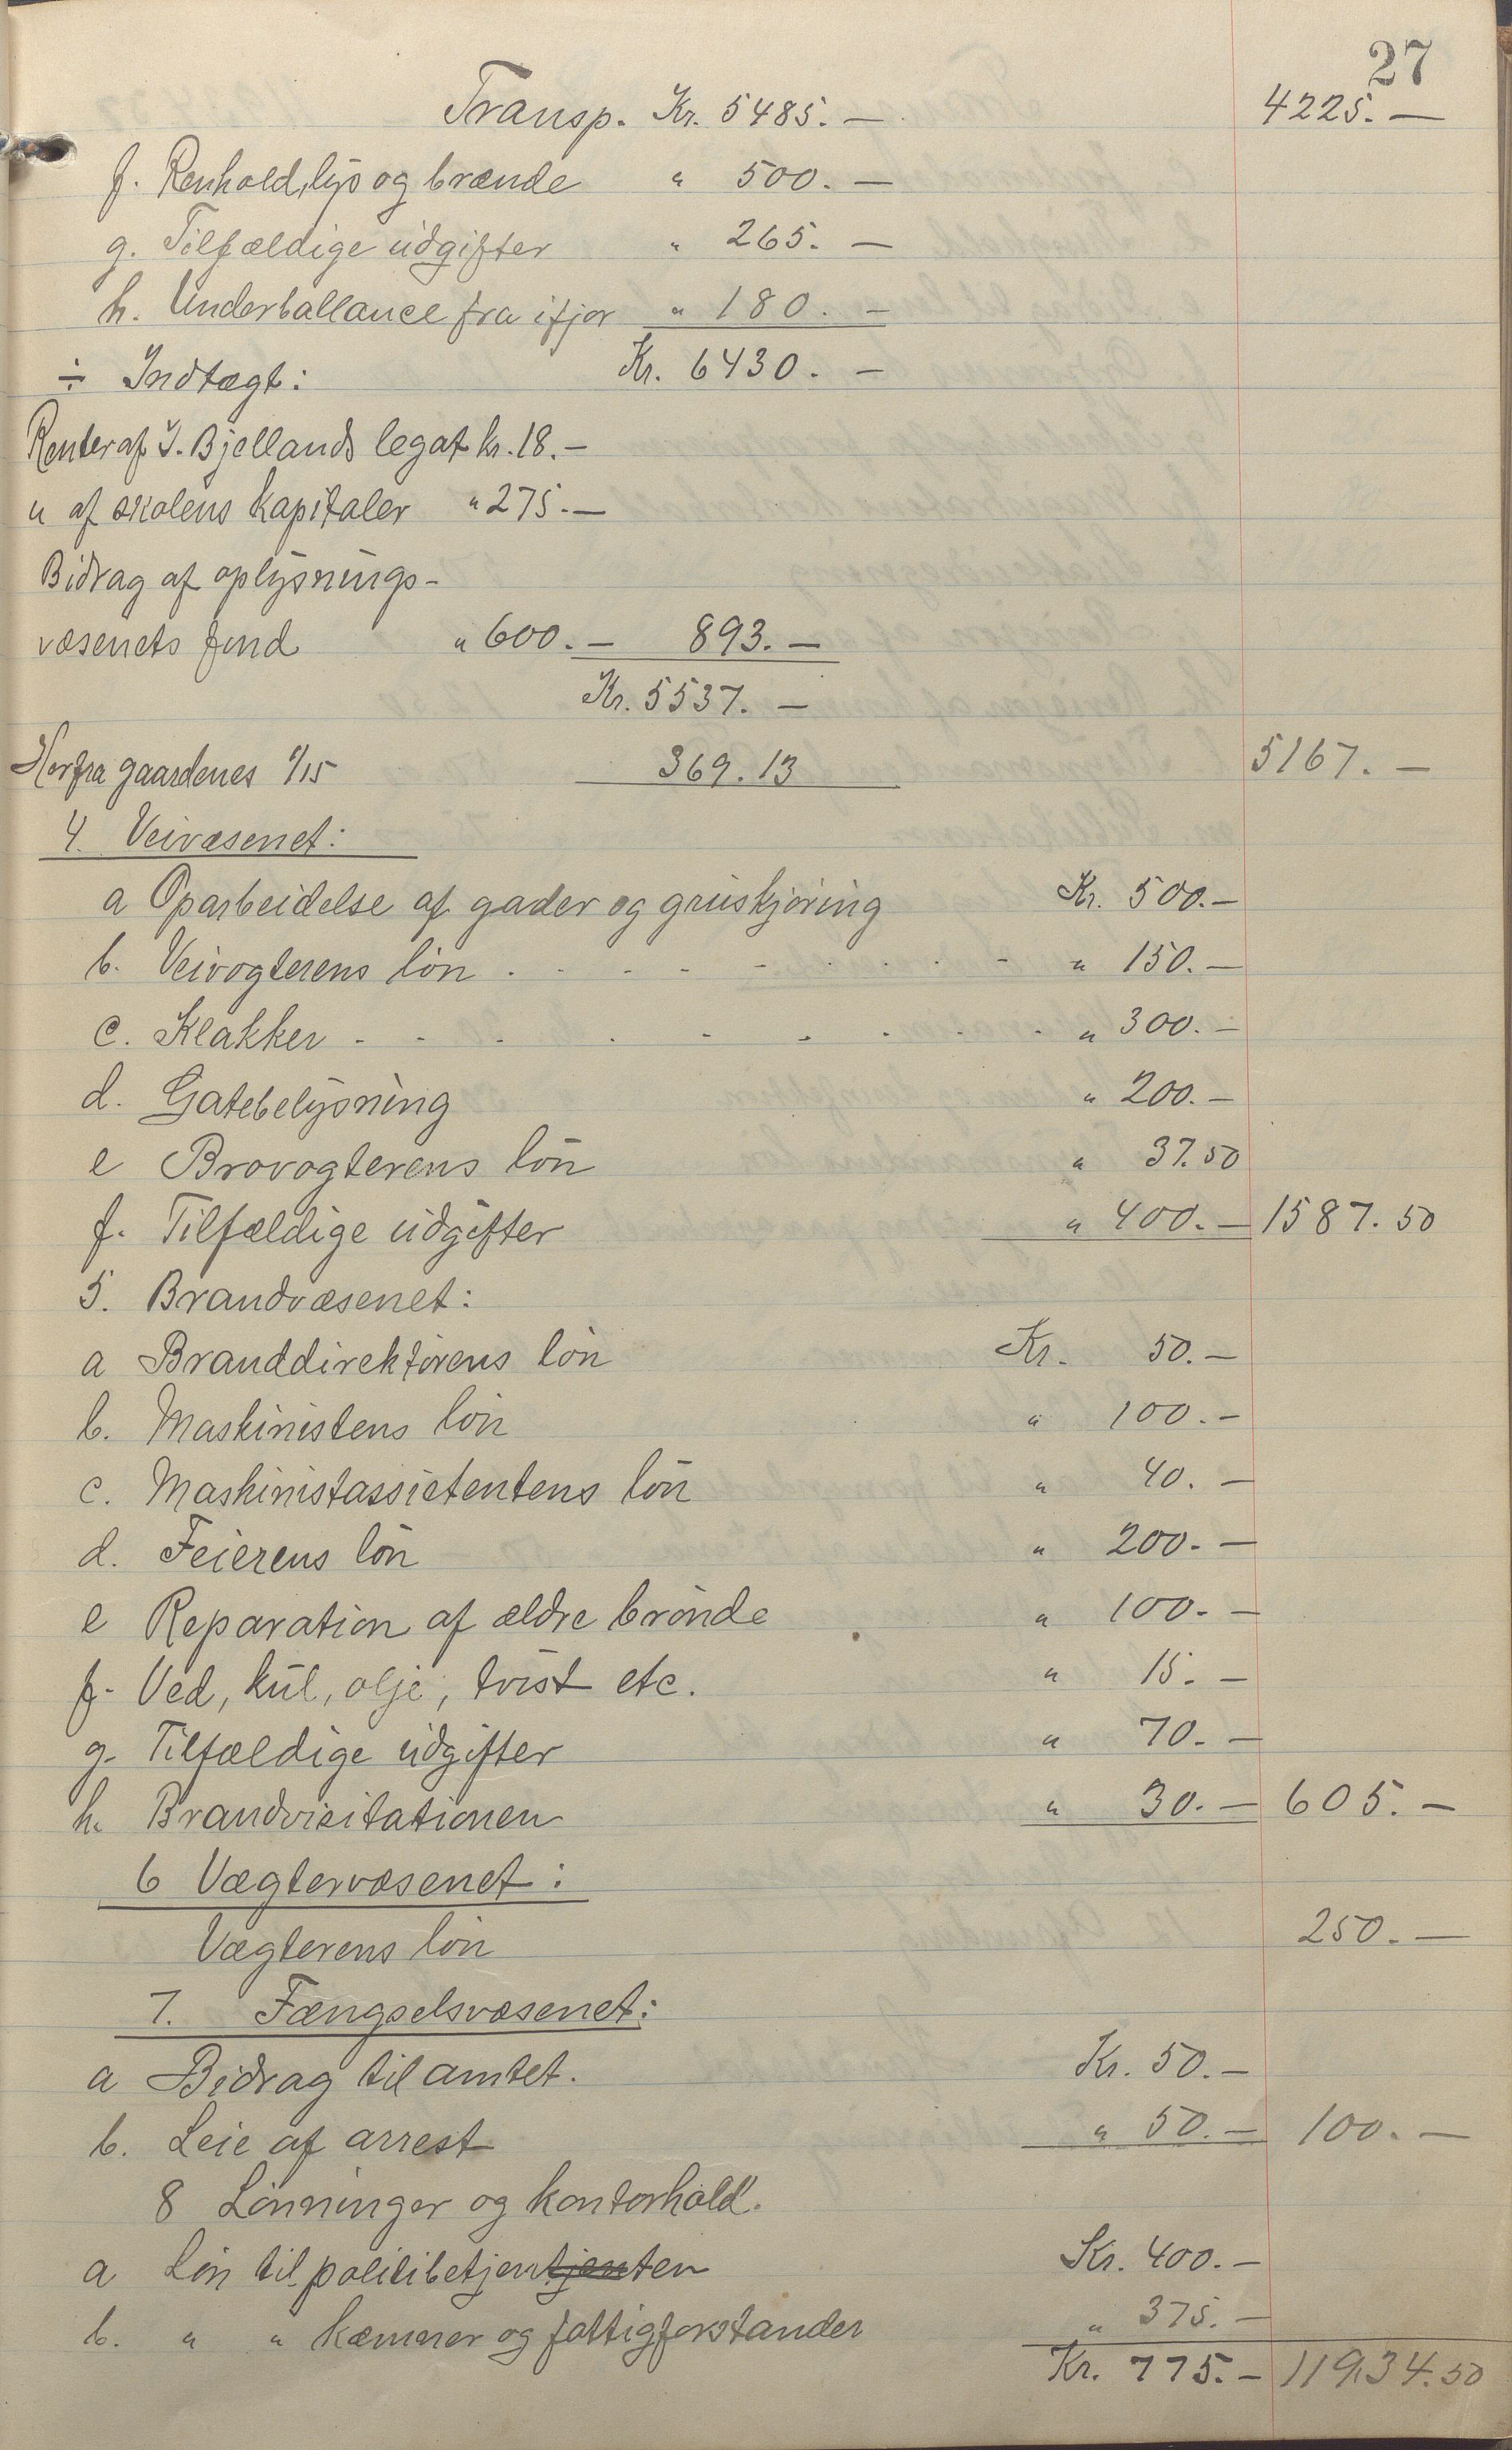 27
Transp. Kr. 5485.— 4225.—
f. Renhold, lys og brænde " 500.—
g. Tilfældige udgifter " 265.—
h. Underballance fra ifjor " 180.—
÷ Indtægt: Kr. 6430.—
Renter af I. Bjellands legat kr. 18.—
" af skolens kapitaler " 275.—
Bidrag af oplysnings-
væsenets fond " 600.— 893.—
Kr. 5537.—
Herfra gaardenes 1/15 369.13 5167.—
4. Veivæsenet:
a Oparbeidelse af gader og gruskjøring Kr. 500.—
b. Veivogterens løn . . . . . . . . . " 150.—
c. Klakker . . . . . . . . . " 300.—
d. Gatebelysning " 200.—
e Brovogterens løn " 37.50
f. Tilfældige udgifter " 400.— 1587.50
5. Brandvæsenet:
a Branddirektørens løn Kr. 50.—
b. Maskinistens løn " 100.—
c. Maskinistassistentens løn " 40.—
d. Feierens løn " 200.—
e Reparation af ældre brønde " 100.—
f. Ved, kul, olje, tvist etc. " 15.—
g. Tilfældige udgifter " 70.—
h. Brandvisitationen " 30.— 605.—
6 Vægtervæsenet:
Vægterens løn 250.—
7. Fængselsvæsenet:
a Bidrag til amtet. Kr. 50.—
b. Leie af arrest " 50.— 100.—
8 Lønninger og kontorhold.
a Løn til politibetjentjenten Kr. 400.—
b. " " kæmner og fattigforstander " 375.—
Kr. 775.— 11934.50